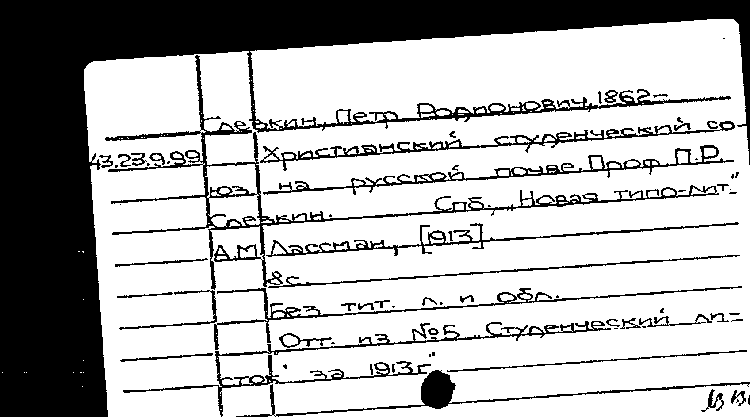 Слезкин, Петр Родионович, 1862-
43.23.9.99 Христианский студенческий со-
юз на русской почве. Проф. П.Р.
Слезкин. Спб., "Новая типо-лит."
А.М. Лассман, [1913].
8с.
Без тит. л. и обл.
Отт. из №5 "Студенческий ли-
сток" за 1913г.